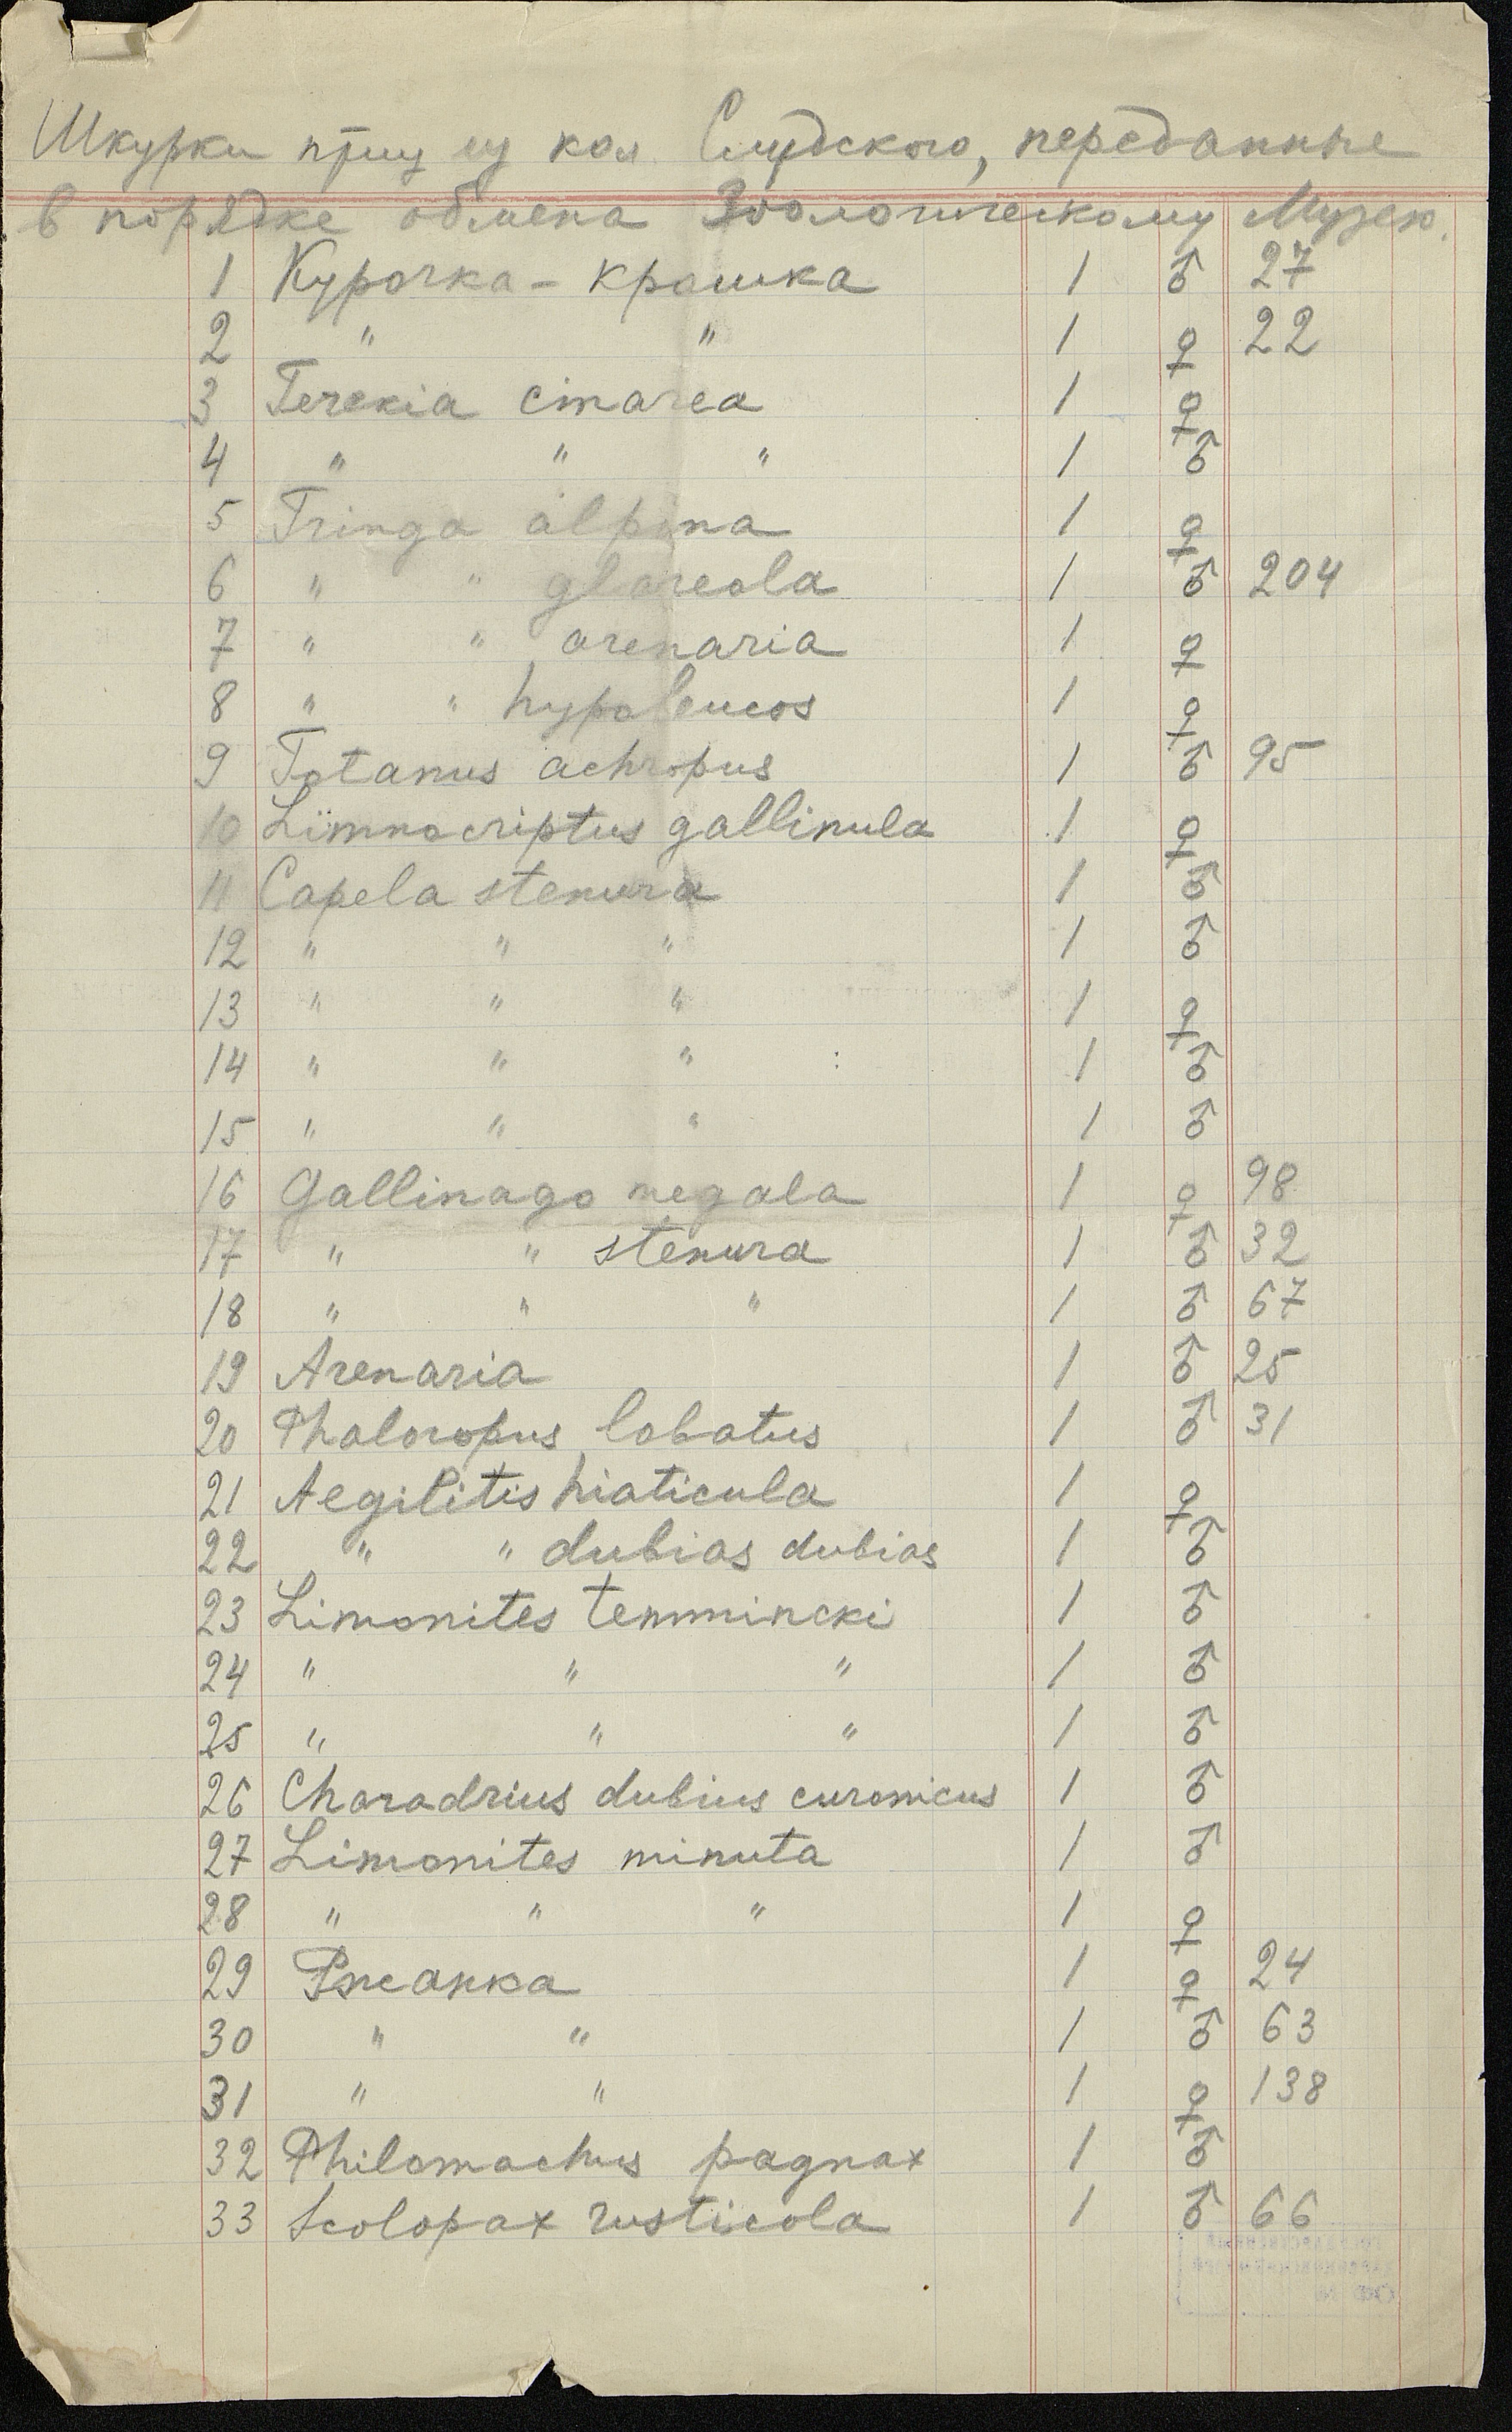 Шкурки птиц из кол Слудского, переданные
в порядке обмена Зоологическому Музею.
1 Курочка - крошка 1 ♂ 27
2 " " 1 ♀ 22
3 Terekia cinarea 1 ♀
4 " " " 1 ♂
5 Tringa alpina 1 ♀
6 " " glareola 1 ♂ 204
7 " " arenaria 1 ♀
8 " " hypoleucos 1 ♀
9 Totanus achropus 1 ♂ 95
10 Limnocriptus gallinula 1 ♀
11 Capela stenura 1 ♂
12 " " " 1 ♂
13 " " " 1 ♀
14 " " " 1 ♂
15 " " " 1 ♂
16 Gallinago megala 1 ♀ 98
17 " " stenura 1 ♂ 32
18 " " " 1 ♂ 67
19 Arenaria 1 ♂ 25
20 Phaloropus lobatus 1 ♂ 31
21 Aegilitis hiaticula 1 ♀
22 " " dubias dubias 1 ♂
23 Limonites temmincki 1 ♂
24 " " " 1 ♂
25 " " " 1 ♂
26 Charadrius dubius curonicus 1 ♂
27 Limonites minuta 1 ♂
28 " " " 1 ♀
29 1 ♀ 24
30 " " 1 ♂ 63
31 " " 1 ♀ 138
32 Philomachus pagnax 1 ♂
33 Scolopax rusticola 1 ♂ 66